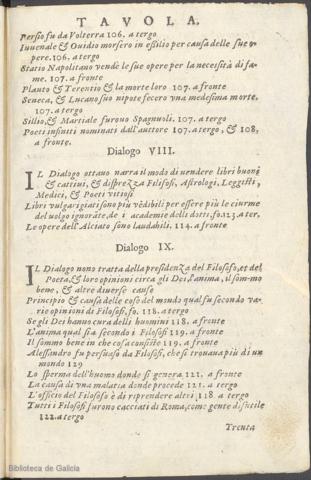 TAVOLA.
Persio fu da Volterra 106. a tergo
Iuuenale & Ouidio morsero in essilio per causa delle sue o-
pere. 106. a tergo
Statio Napolitano vendè le sue opere per la necessità di fa-
me. 107. a fronte
Plauto & Terentio & la morte loro 107. a fronte
Seneca, & Lucano suo nipote fecero vna medesima morte.
107. a tergo
Sillio, & Martiale furono Spagnuoli. 107. a tergo
Poeti infiniti nominati dall'auttore 107. a tergo, & 108,
a fronte.
Dialogo VIII.
IL Dialogo ottauo narra il modo di uendere libri buoni
& cattiui, & disprezza Filosofi, Astrologi, Leggisti,
Medici, & Poeti vitiosi
Libri vulgarizati sono più vẽdibili per essere più le ciurme
del uolgo ignorãte, de i academie delli dotti, fo. 113. a ter.
Le opere dell'Alciato sono laudabili. 114. a fronte
Dialogo IX.
IL Dialogo nono tratta della presidenza del Filosofo, et del
Poeta, & loro opinioni circa gli Dei, l'anima, il sommo
bene, & altre diuerse cause
Principio & causa delle cose del mondo qual fu secondo va-
rie opinioni di Filosofi, fo. 118. a tergo
Se gli Dei hanno cura delli huomini 118. a fronte
L'anima qual sia secondo i Filosofi 119. a fronte
Il sommo bene in che cosa consiste 119. a fronte
Alessandro fu persuaso da Filosofi, che si trouaua più di un
mondo 129
Lo sperma dell'huomo donde si genera 121. a fronte
La causa di vna malatia donde procede 121. a tergo
L'officio del Filosofo è di riprendere altri 118 a tergo
Tutti i Filosofi furono cacciati di Roma, come gente disutile
122. a tergo
Trenta
Biblioteca de Galicia